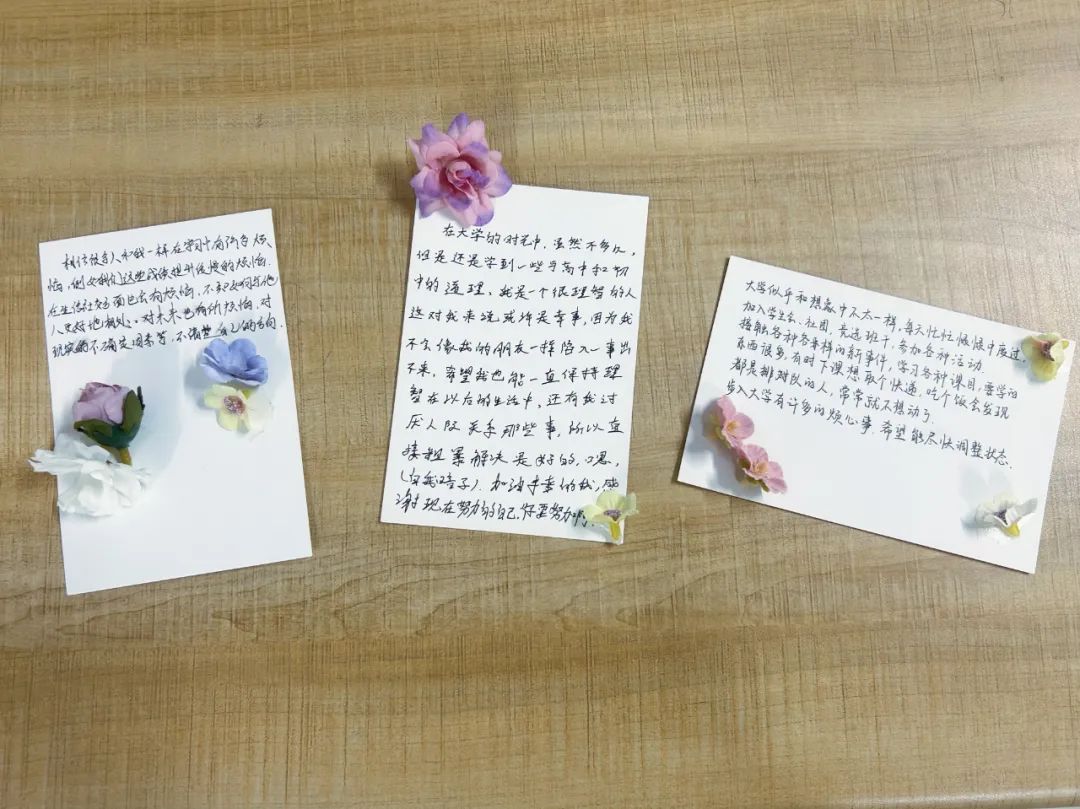 相信很多人和我一样在学习中有许多烦
恼,例如我们这些成绩提升缓慢的烦恼.
在生活社交方面也会有烦恼,不知如何与他
人更好地相处.对未来也有所烦恼,对
现实的不确定因素等,不清楚自己的方向.
在大学的时光中,虽然不多久,
但是还是学到一些与高中和初
中的道理,我是一个很理智的人
这对我来说或许是幸事,因为我
不会像我的朋友一样陷入一事出
不来,希望我也能一直保持理
智在以后的生活中,还有我讨
厌人际关系那些事,所以直
接粗暴解决是好的,嗯,
加油
谢现在努力的自己,
大学似乎和想象中不太一样,每天忙忙碌碌中度过,
加入学生会、社团,竞选班干,参加各种活动.
接触各种各样的新事件,学习各种课目,要学的
东西很多,有时下课想取个快递,吃个饭会发现
都是排队的人,常常就不想动了.
步入大学有许多的烦心事,希望能尽快调整状态.